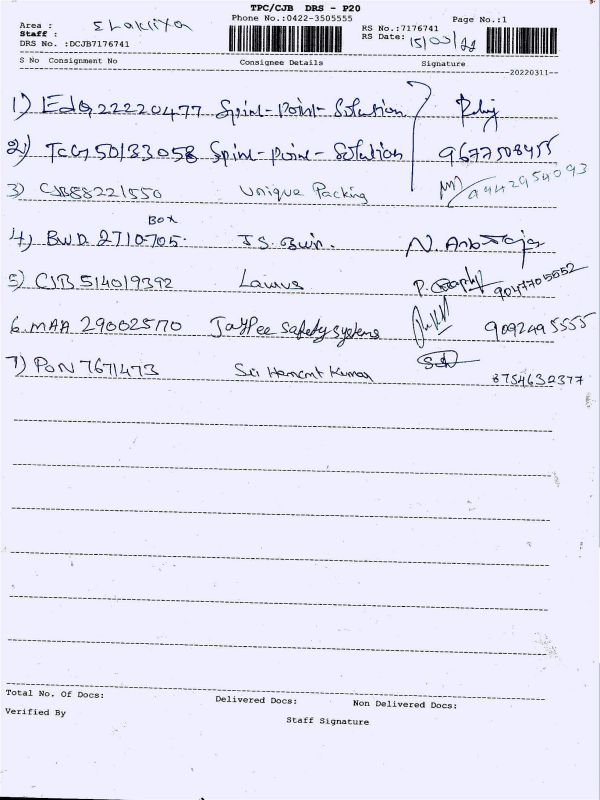 TPC/CJB DRS - P20
Area : Elakkiya Phone No.:0422-3505555 Page No.:1
Staff : RS No.:7176741
DRS No. :DCJB7176741 RS Date: 15/03/22
S No Consignment No Consignee Details Signature
20220311--
1) EdQ22220477 Spine-Point-Solution
2) TCG 50133058 Spine-Point-Solution 9677508455
3) CJB88221550 Unique Packing 9442954093
Box
4) BWD 2710705. J.S. N.
5) CJB 514019392 Laurus P. 9047705652
6. MAA 29002570 Jaypee Safety Systems 9092495555
7) PON 7671473 Sri Hemant Kumar 8754632377
Total No. Of Docs: Delivered Docs: Non Delivered Docs:
Verified By Staff Signature